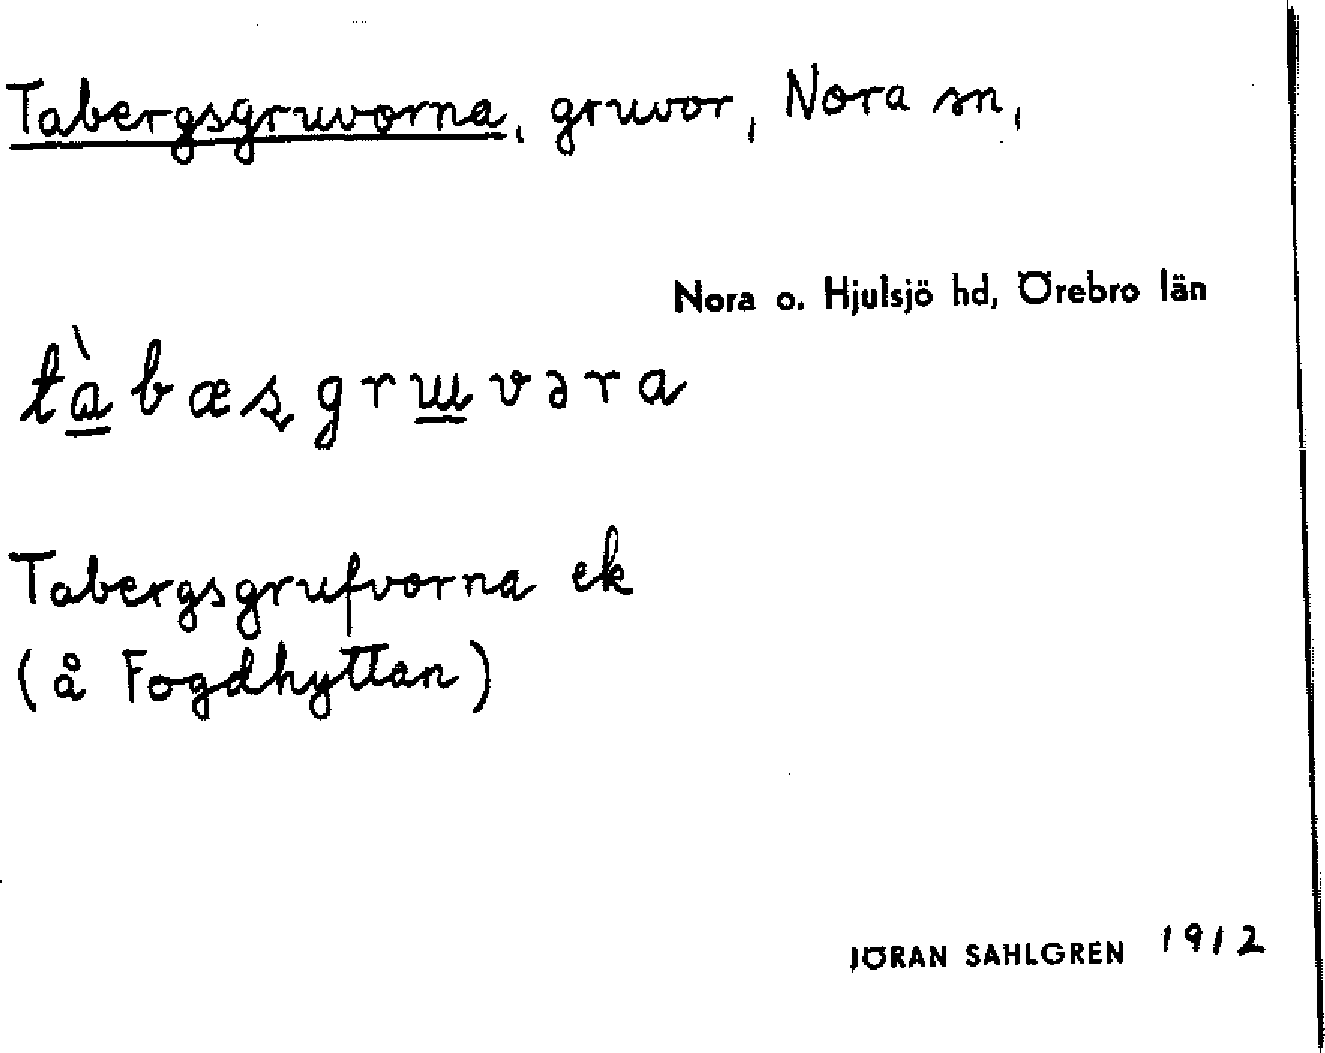 Tabergsgruvorna, gruvor, Nora sn,
Nora o. Hjulsjö hd, Örebro län
tàbæs̨grɯvəra
Tabergsgrufvorna ek
(å Fogdhyttan)
JÖRAN SAHLGREN 1912